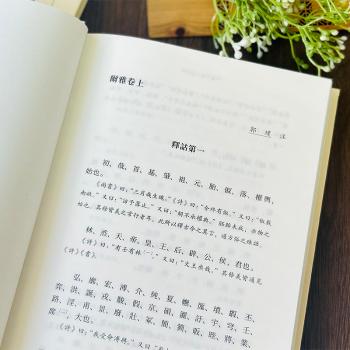 爾雅卷上
郭 璞 注
釋詁第一
初、哉、首、基、肇、祖、元、胎、俶、落、權輿，
始也。
《尚書》曰：“三月哉生魄。”《詩》曰：“令終有俶。”又曰：“俶載
南畝。”又曰：“訪予落止。”又曰：“胡不承權輿。”胚胎未成，亦物之
始也。其餘皆義之常行者耳。此所以釋古今之異言，通方俗之殊語。
林、烝、天、帝、皇、王、后、辟、公、侯，君也。
《詩》曰：“有壬有林
，”又曰：“文王烝哉。”其餘義皆通見
《詩》《書》。
弘、廓、宏、溥、介、純、夏、幠、厖、墳、嘏、丕、
弈、洪、誕、戎、駿、假、京、碩、濯、訏、宇、穹、壬、
路、淫、甫、景、廢、壯、冢、簡、箌、昄、晊、將、業、
席，大也。
《詩》曰：“我受命溥將。”又曰